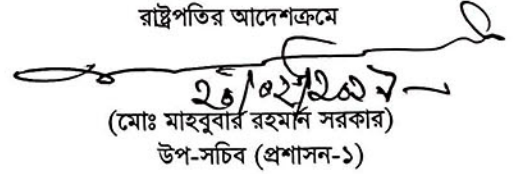 রাষ্ট্রপতির আদেশক্রমে
(মোঃ মাহবুবার রহমান সরকার)
উপ-সচিব (প্রশাসন-১)